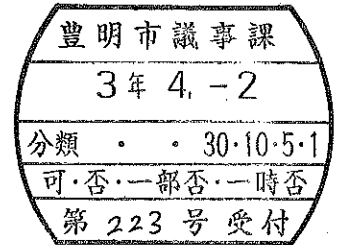 豊明市議事課
3年 4. -2
分類 ・ ・ 30・10・5・1
可・否・一部否・一時否
第 223 号 受付